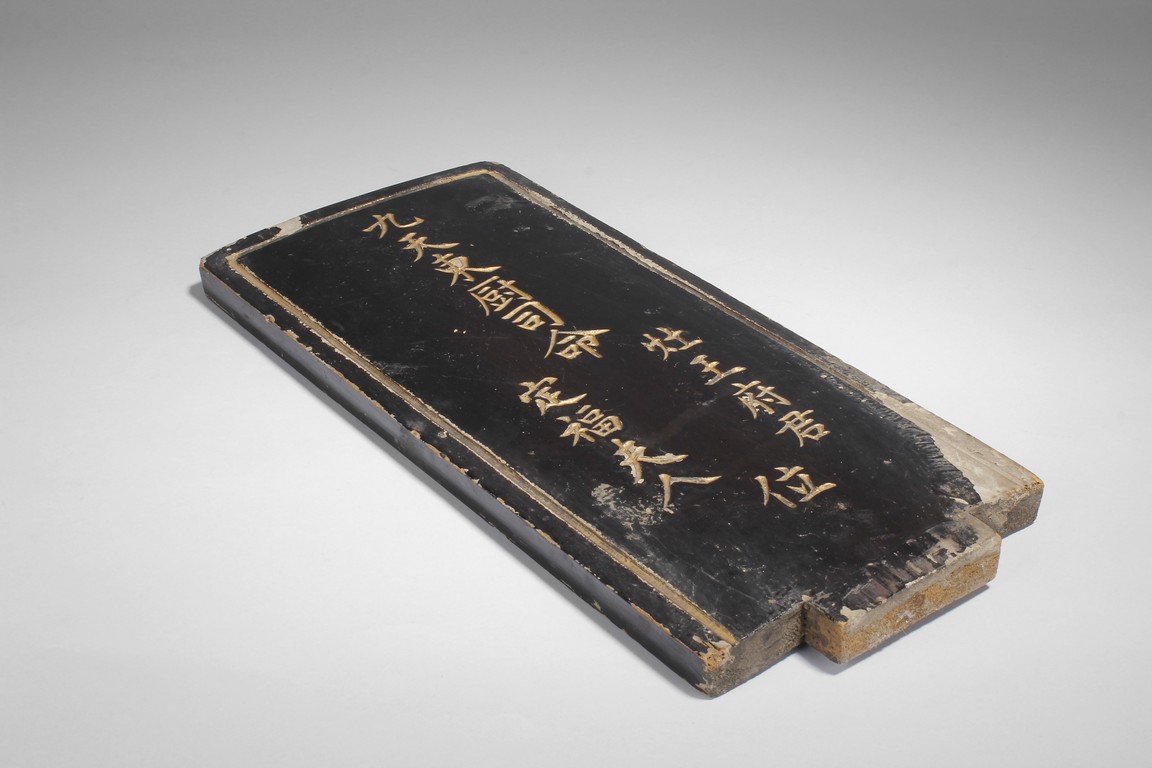 九天東厨司命
灶王府君
定福夫人
位